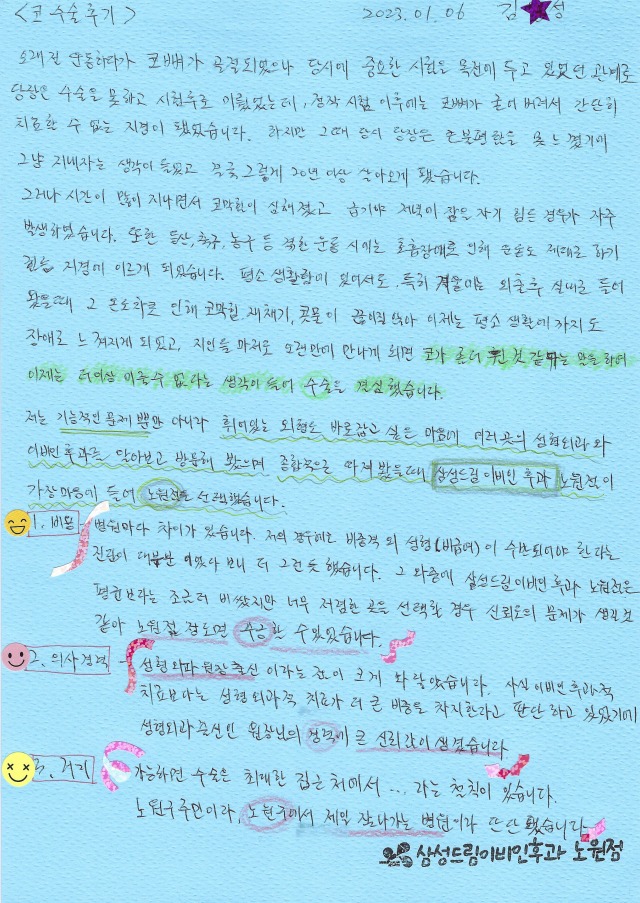 <코 수술 후기> 2023.01.06 김 성
오래전 운동하다가 코뼈가 골절되었으나 당시에 중요한 시험을 목전에 두고 있었던 관계로
당장은 수술을 못하고 시험후로 미뤘었는데, 정작 시험 이후에는 코뼈가 굳어 버려서 간단히
치료할 수 없는 지경이 됐었습니다. 하지만 그때 당시 당장은 큰불편함을 못 느꼈기에
그냥 지내자는 생각이 들었고 쭈욱 그렇게 20년 이상 살아오게 됐습니다.
그러나 시간이 많이 지나면서 코막힘이 심해졌고 급기야 저녁에 잠을 자기 힘든 경우가 자주
발생하였습니다. 또한 등산, 축구, 농구 등 격한 운동 시에는 호흡장애로 인해 운동도 제대로 하기
힘들 지경에 이르게 되었습니다. 평소 생활함에 있어서도 특히 겨울에는 외출후 실내로 들어
왔을때 그 온도차로 인해 코막힘, 재채기, 콧물이 끊이질 않아 이제는 평소 생활에 까지도
장애로 느껴지게 되었고, 지인들 마저도 오랜만에 만나게 되면 코가 좀더 휜 것 같다는 말을 하여
이제는 더이상 미룰수 없다는 생각이 들어 수술을 결심했습니다.
저는 기능적인 문제 뿐만 아니라 휘어있는 외형도 바로잡고 싶은 마음에 여러곳의 성형외과와
이비인후과를 알아보고 방문해 봤으며 종합적으로 따져 봤을때 삼성드림이비인후과 노원점이
가장 마음에 들어 노원점을 선택했습니다.
1. 비용 - 병원마다 차이가 있습니다. 저의 경우에도 비중격 외 성형(비급여)이 수반되어야 한다는
진단이 대부분 이었다 보니 더 그런듯 했습니다. 그 와중에 삼성드림이비인후과 노원점은
평균보다는 조금 더 비쌌지만 너무 저렴한 곳을 선택할 경우 신뢰도의 문제가 생길것
같아 노원점 정도면 수긍할 수 있었습니다.
2. 의사경력 - 성형외과 원장 출신 이라는 점이 크게 와 닿았습니다. 사실 이비인후과적
치료보다는 성형외과적 치료가 더 큰 비중을 차지한다고 판단하고 있었기에
성형외과 출신인 원장님의 경력에 큰 신뢰감이 생겼습니다
3. 거리 - 가능하면 수술은 최대한 집근처에서 ... 라는 철칙이 있습니다.
노원구주민이라, 노원구에서 제일 잘나가는 병원이라 판단했습니다
삼성드림이비인후과 노원점